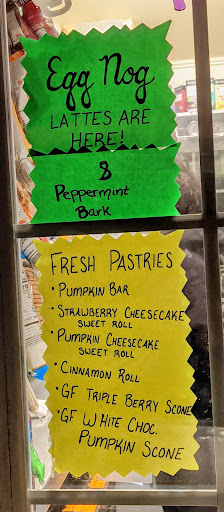 Egg Nog
LATTES ARE
HERE!
&
Peppermint
Bark
FRESH PASTRIES
• PUMPKIN BAR
• STRAWBERRY CHEESECAKE
SWEET ROLL
• PUMPKIN CHEESECAKE
SWEET ROLL
• CINNAMON ROLL
• GF TRIPLE BERRY SCONE
• GF WHITE CHOC.
PUMPKIN SCONE